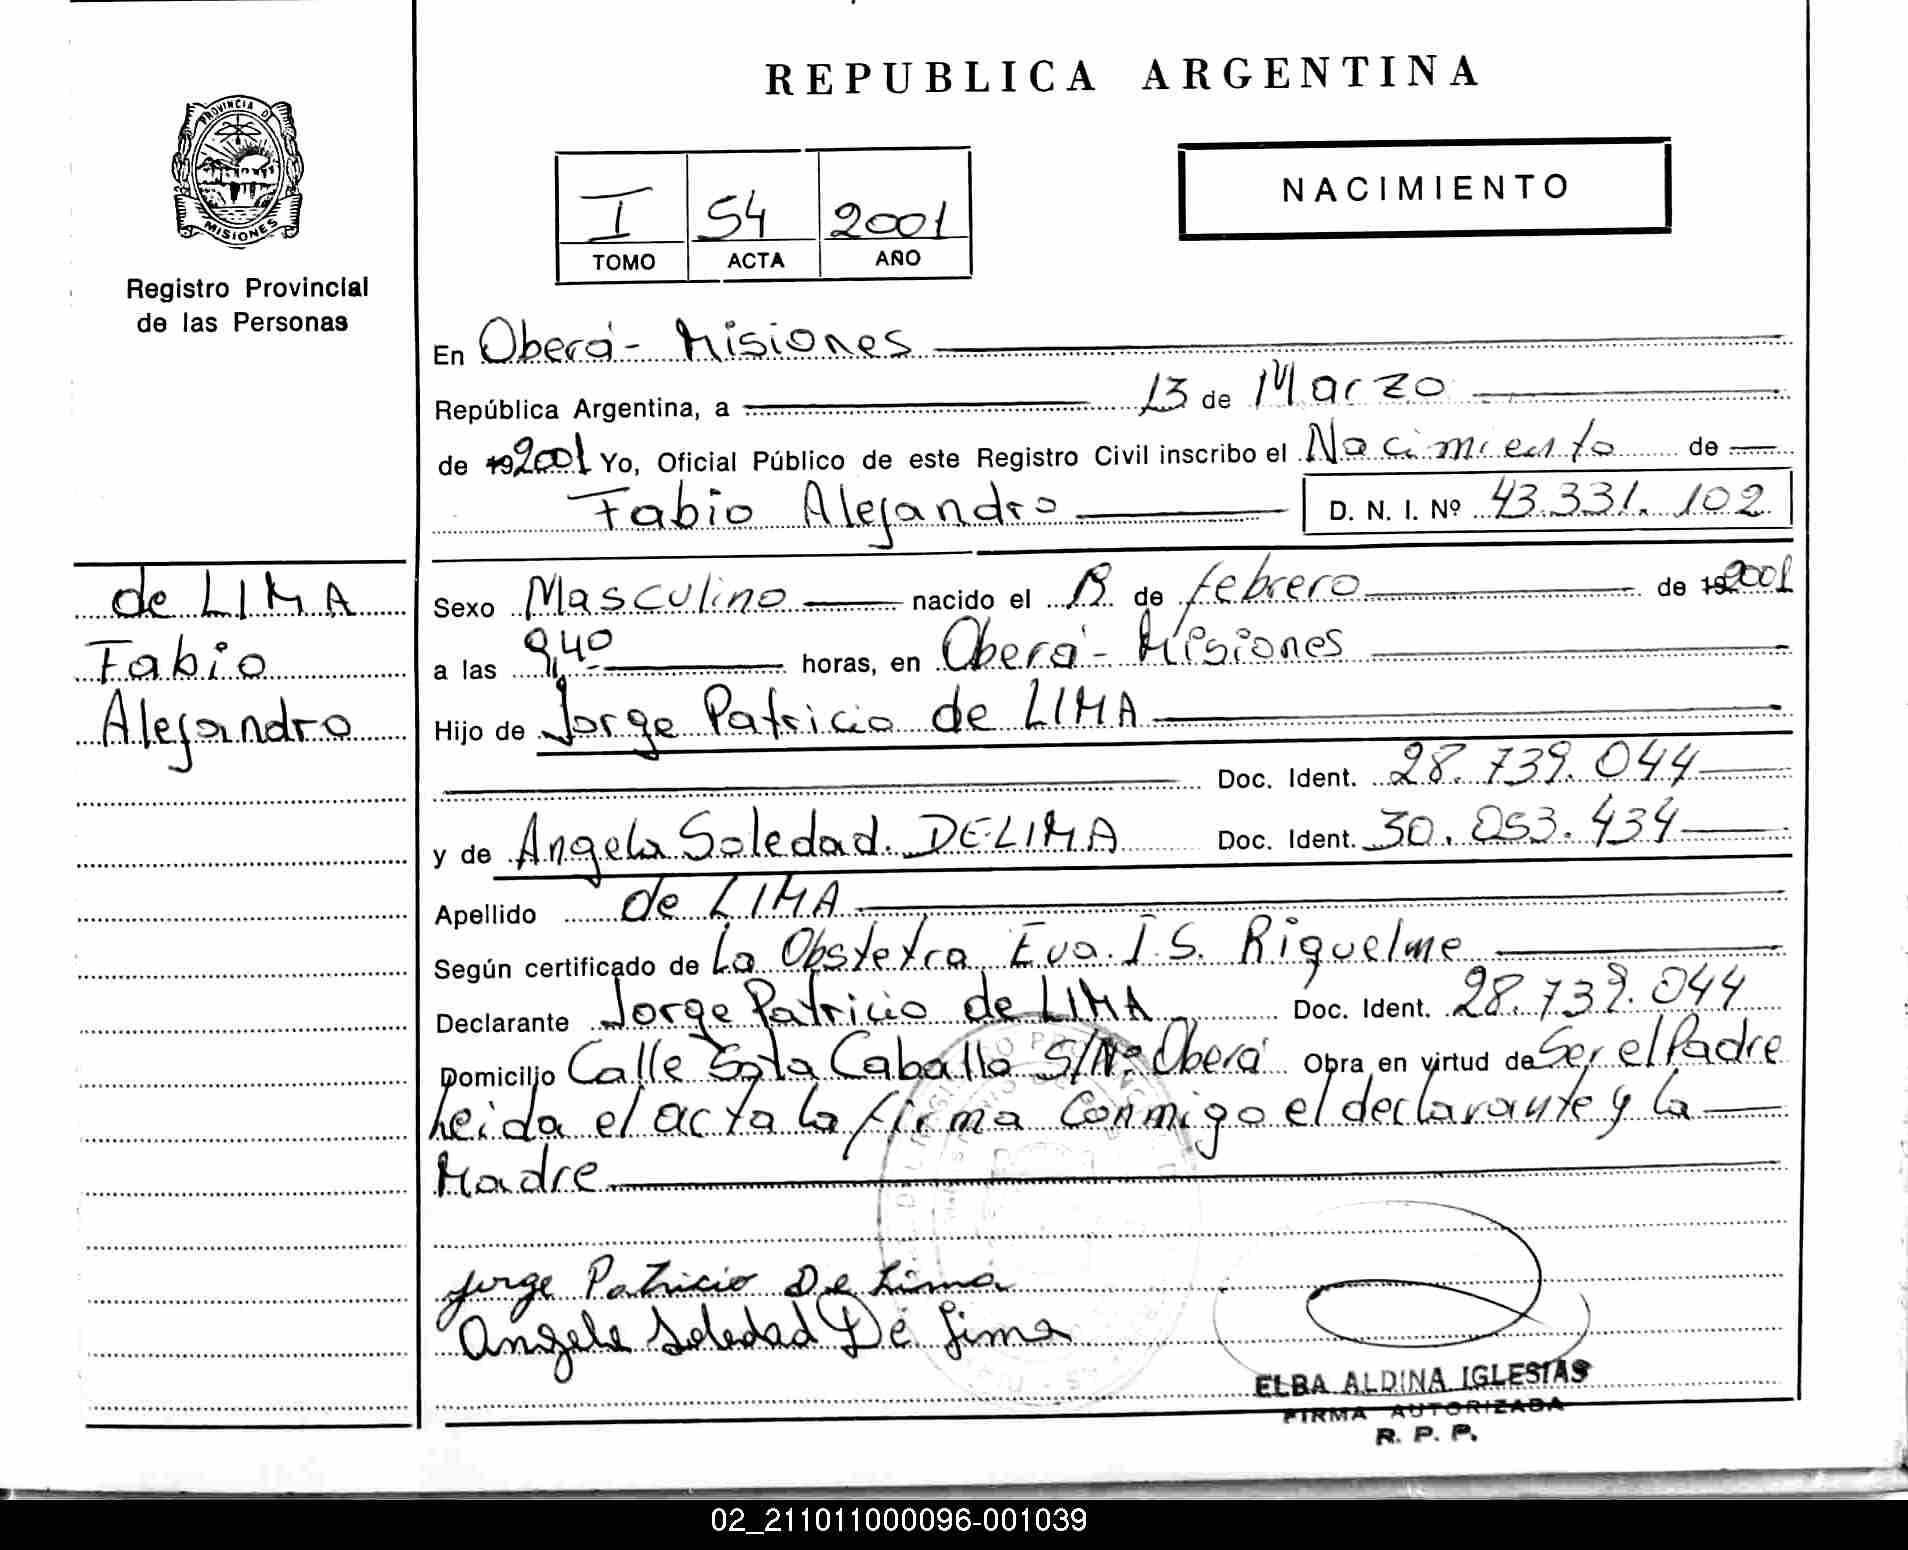 REPUBLICA ARGENTINA
PROVINCIA D
MISIONES
Registro Provincial
de las Personas
NACIMIENTO
I 54 2001
TOMO ACTA AÑO
En Oberá - Misiones
República Argentina, a 13 de Marzo
de 192001 Yo, Oficial Público de este Registro Civil inscribo el Nacimiento de
Fabio Alejandro D. N. I. Nº 43.331.102
de LIMA
Fabio
Alejandro
Sexo Masculino nacido el de febrero de 192001
a las 9,40 horas, en Oberá - Misiones
Hijo de Jorge Patricio de LIMA
Doc. Ident. 28.739.044
y de Angela Soledad DE LIMA Doc. Ident. 30.053.434
Apellido de LIMA
Según certificado de La Obstetra Eva I. S. Riquelme
Declarante Jorge Patricio de LIMA Doc. Ident. 28.739.044
Domicilio Calle Caballo S/Nº Oberá Obra en virtud de Ser el Padre
Leida el acta la firma Conmigo el declarante y la
Madre
Jorge Patricio De Lima
Angela Soledad De Lima
ELBA ALDINA IGLESIAS
FIRMA AUTORIZADA
R. P. P.
02_211011000096-001039